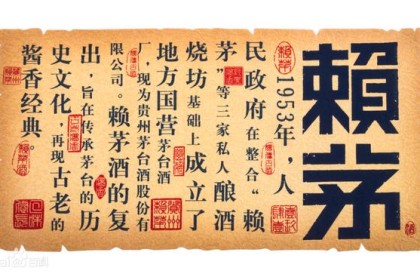 賴茅
1953年，人
民政府在整合“赖
茅”等三家私人酿酒
烧坊基础上成立了
地方国营茅台酒
厂，现为贵州茅台酒股份有
限公司。赖茅酒的复
出，旨在传承茅台的历
史文化 再现古老的
酱香经典。